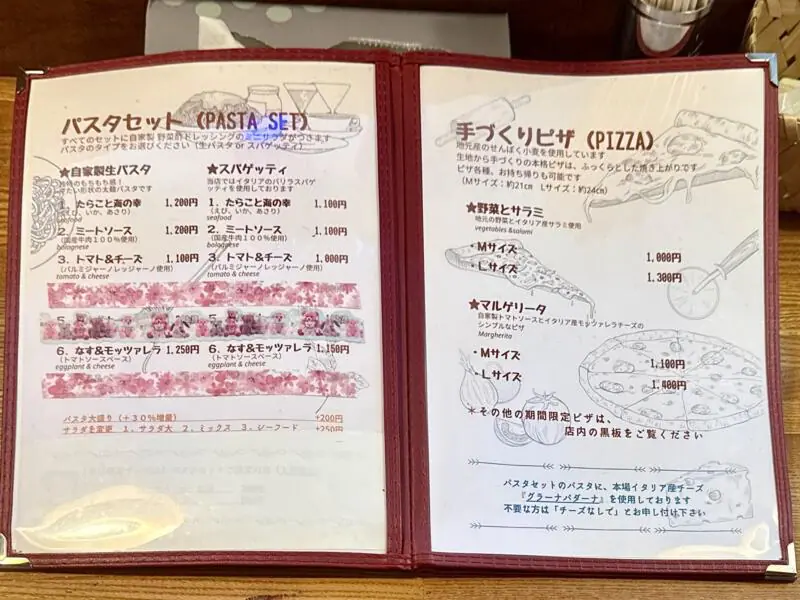 パスタセット (PASTA SET)
すべてのセットに自家製 野菜酢ドレッシングのミニサラダがつきます
パスタのタイプをお選びください（生パスタ or スパゲッティ）
★自家製生パスタ
独特のもちもち感！
平たい形状の太麺パスタです
1. たらこと海の幸 1,200円
（えび、いか、あさり）
seafood
2. ミートソース 1,200円
（国産牛肉１００％使用）
bolognese
3. トマト&チーズ 1,100円
（パルミジャーノレッジャーノ使用）
tomato & cheese
6. なす&モッツァレラ 1,250円
（トマトソースベース）
eggplant & cheese
★スパゲッティ
当店ではイタリアのバリラスパゲ
ッティを使用しております
1. たらこと海の幸 1,100円
（えび、いか、あさり）
seafood
2. ミートソース 1,100円
（国産牛肉１００％使用）
bolognese
3. トマト&チーズ 1,000円
（パルミジャーノレッジャーノ使用）
tomato & cheese
6. なす&モッツァレラ 1,150円
（トマトソースベース）
eggplant & cheese
パスタ大盛り（＋３０％増量） +200円
サラダを変更 1. サラダ大 2. ミックス 3. シーフード +250円
手づくりピザ (PIZZA)
地元産のせんぱく小麦を使用しています
生地から手づくりの本格ピザは、ふっくらとした焼き上がりです
ピザ各種、お持ち帰りも可能です
（Mサイズ：約21cm Lサイズ：約24cm）
★野菜とサラミ
地元の野菜とイタリア産サラミ使用
vegetables &salami
・Mサイズ 1,000円
・Lサイズ 1,300円
★マルゲリータ
自家製トマトソースとイタリア産モッツァレラチーズの
シンプルなピザ
Margherita
・Mサイズ 1,100円
・Lサイズ 1,400円
＊その他の期間限定ピザは、
店内の黒板をご覧ください
パスタセットのパスタに、本場イタリア産チーズ
『グラーナパダーナ』を使用しております
不要な方は「チーズなしで」とお申し付け下さい